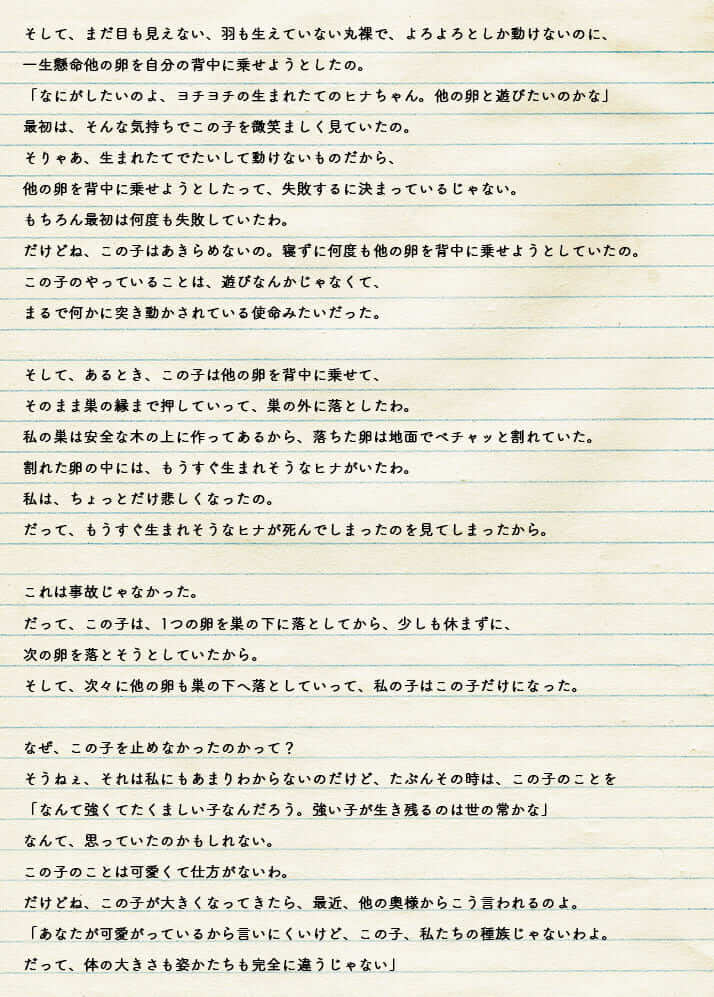 そして、まだ目も見えない、羽も生えていない丸裸で、よろよろとしか動けないのに、
一生懸命他の卵を自分の背中に乗せようとしたの。
「なにがしたいのよ、ヨチヨチの生まれたてのヒナちゃん。他の卵と遊びたいのかな」
最初は、そんな気持ちでこの子を微笑ましく見ていたの。
そりゃあ、生まれたてでたいして動けないものだから、
他の卵を背中に乗せようとしたって、失敗するに決まっているじゃない。
もちろん最初は何度も失敗していたわ。
だけどね、この子はあきらめないの。寝ずに何度も他の卵を背中に乗せようとしていたの。
この子のやっていることは、遊びなんかじゃなくて、
まるで何かに突き動かされている使命みたいだった。
そして、あるとき、この子は他の卵を背中に乗せて、
そのまま巣の縁まで押していって、巣の外に落としたわ。
私の巣は安全な木の上に作ってあるから、落ちた卵は地面でベチャッと割れていた。
割れた卵の中には、もうすぐ生まれそうなヒナがいたわ。
私は、ちょっとだけ悲しくなったの。
だって、もうすぐ生まれそうなヒナが死んでしまったのを見てしまったから。
これは事故じゃなかった。
だって、この子は、1つの卵を巣の下に落としてから、少しも休まずに、
次の卵を落とそうとしていたから。
そして、次々に他の卵も巣の下へ落としていって、私の子はこの子だけになった。
なぜ、この子を止めなかったのかって？
そうねぇ、それは私にもあまりわからないのだけど、たぶんその時は、この子のことを
「なんて強くてたくましい子なんだろう。強い子が生き残るのは世の常かな」
なんて、思っていたのかもしれない。
この子のことは可愛くて仕方がないわ。
だけどね、この子が大きくなってきたら、最近、他の奥様からこう言われるのよ。
「あなたが可愛がっているから言いにくいけど、この子、私たちの種族じゃないわよ。
だって、体の大きさも姿かたちも完全に違うじゃない」